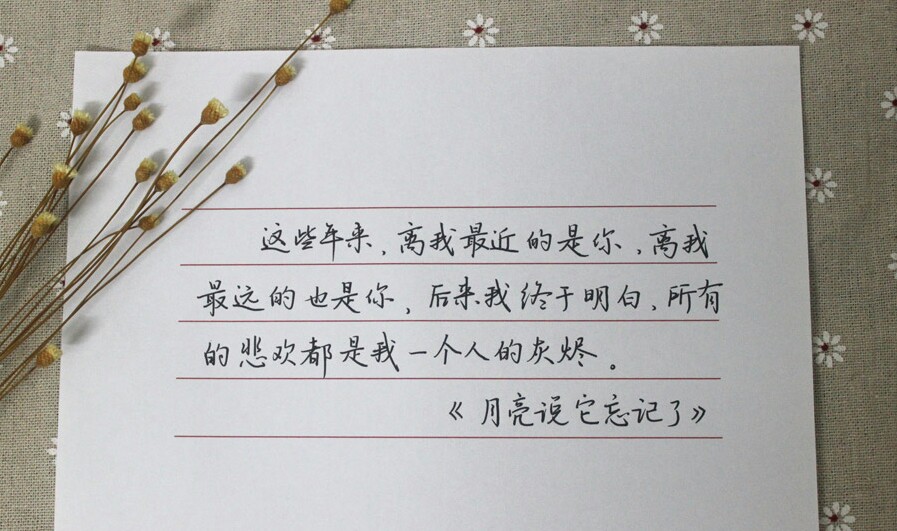 这些年来，离我最近的是你，离我
最远的也是你，后来我终于明白，所有
的悲欢都是我一个人的灰烬。
《月亮说它忘记了》